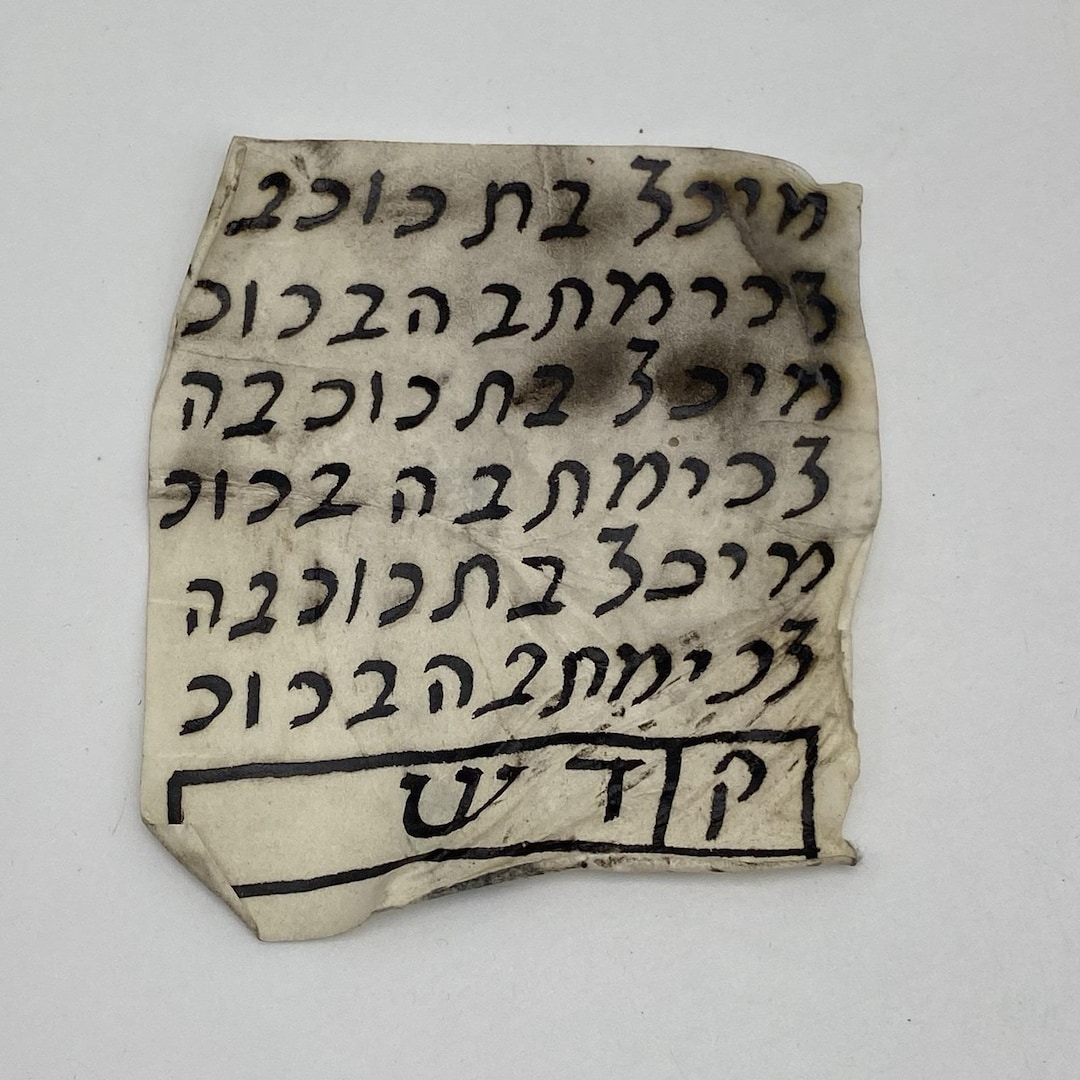 מיכצ בת כוכב
צכימתב הבכוכ
מיכצ בתכוכבה
צכימתבה בכוכ
מיכצבתכוכבה
צכימתבהבכוכ
ק ד ש